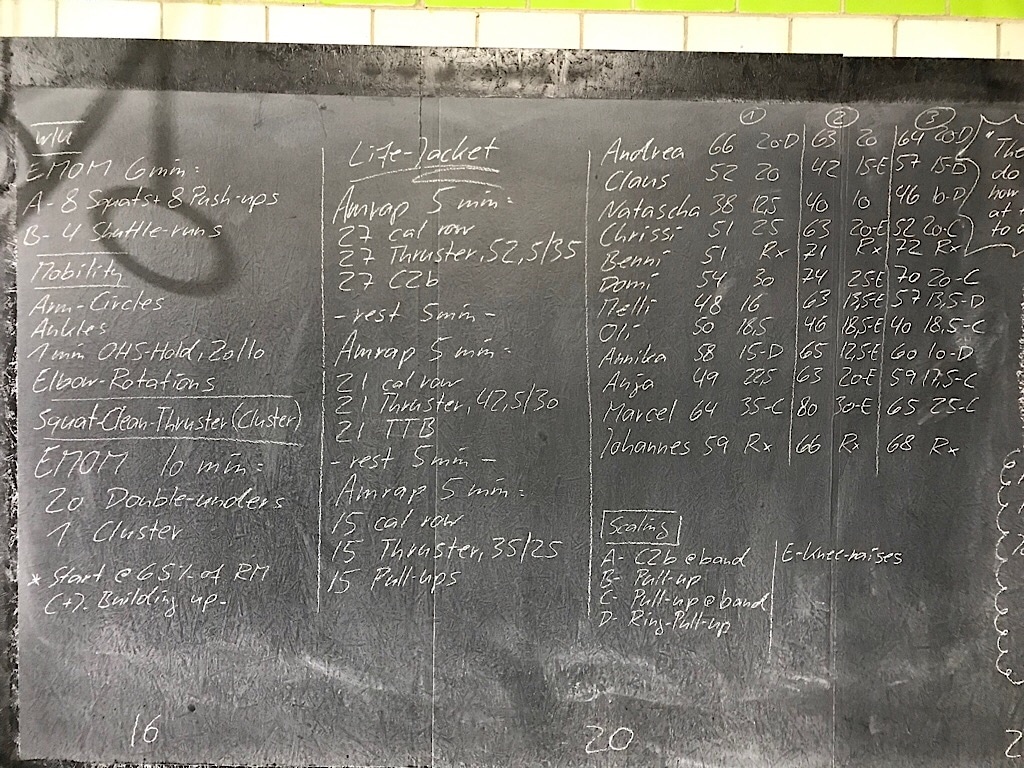 w/u
EMOM 6min:
A- 8 Squats+ 8 Push-ups
B- 4 Shuttle-runs
Mobility
Arm-Circles
Ankles
1 min OHS-Hold, 20/10
Elbow-Rotations
Squat-Clean-Thruster (Cluster)
EMOM 10 min:
20 Double-unders
1 Cluster
* Start @ 65% of RM
(+). Building up-
16
Life-Jacket
Amrap 5 min:
27 cal row
27 Thruster, 52,5/35
27 C2b
- rest 5min -
Amrap 5 min:
21 cal row
21 Thruster, 42,5/30
21 TTB
- rest 5 min -
Amrap 5 min:
15 cal row
15 Thruster, 35/25
15 Pull-ups
1 2 3
Andrea 66 20-D 63 20 64 20-D
Claus 52 20 42 15-E 57 15-D
Natascha 38 12,5 40 10 46 10-D
Chrissi 51 25 63 20-E 52 20-C
Benni 51 Rx 71 Rx 72 Rx
Domi 54 30 74 25-E 70 20-C
Melli 48 16 63 13,5-E 57 13,5-D
Oli 50 18,5 46 18,5-E 40 18,5-C
Annika 58 15-D 65 12,5-E 60 10-D
Anja 49 22,5 63 20-E 59 17,5-C
Marcel 64 35-C 80 30-E 65 25-C
Johannes 59 Rx 66 Rx 68 Rx
Scaling
A- C2b @ band
B- Pull-up
C- Pull-up @ band
D- Ring-Pull-up
E-Knee-raises
20
"The
do
how
at
to
2